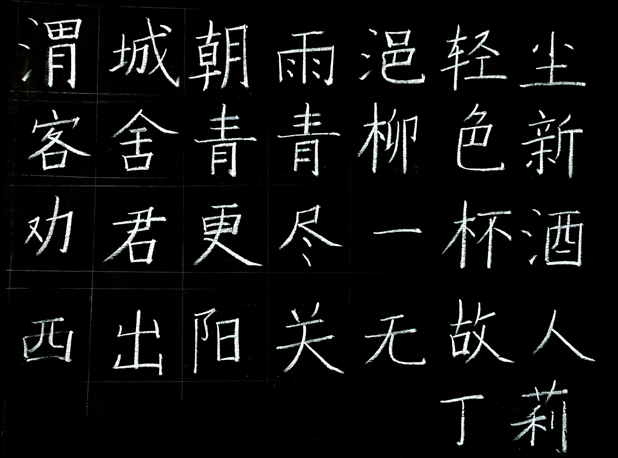 渭城朝雨浥轻尘
客舍青青柳色新
劝君更尽一杯酒
西出阳关无故人
丁莉